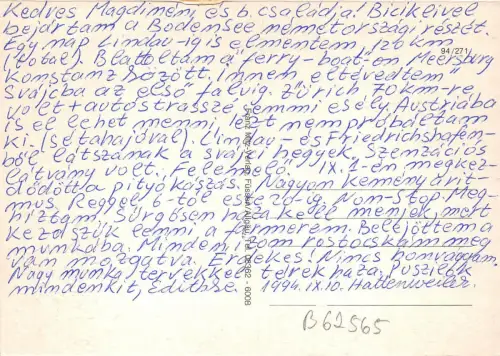 Kedves Magdiméni és b. családja! Biciklivel
bejártam a Bodensee németországi részét.
Egy nap Lindau-ig is elmentem 120 km
(total). Blattoltam a "ferry-boat"-on Meersburg
Konstanz között. Innem eltévedtem
Svájcba az első faluig. Zürich 70 km-re
volt + autostrassze, semmi esély. Austriába
is el lehet menni, ezt nem próbáltam
ki (sétahajóval). Lindau- és Friedrichshafen-
ből látszanak a svájci hegyek. Szenzációs
látvány volt. Felemelő. IX. 1-én megkez-
dődött a pityókászás. Nagyon kemény rit-
mus. Reggel 6-tól este 20-ig. Non-Stop. Meg-
híztam. Sürgősen haza kell menjek, mert
kezdszük lenni a farmerem. Beletjöttem a
munkába. Minden izom rostocskám meg
van mozgatva. Érdekes! Nincs honvágyam.
Nagy munka tervekkel térek haza, Puszilok
mindenkit, Editke. 1994. IX. 10. Hattenweiler.
94/271
Franz Milz Verlag Füssen/Allgäu Tel. 08362 - 6008
B62565